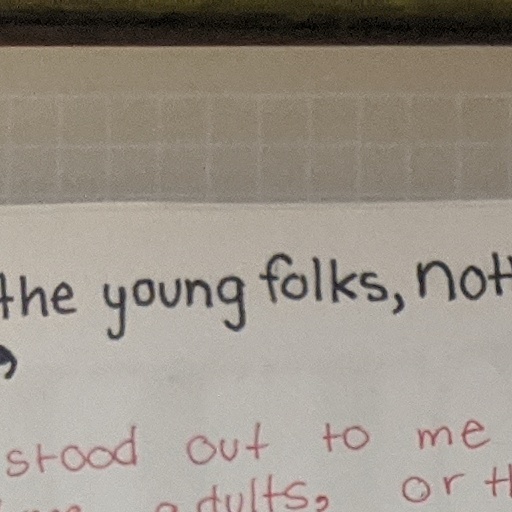 the young folks, not
stood out to me
adults, or